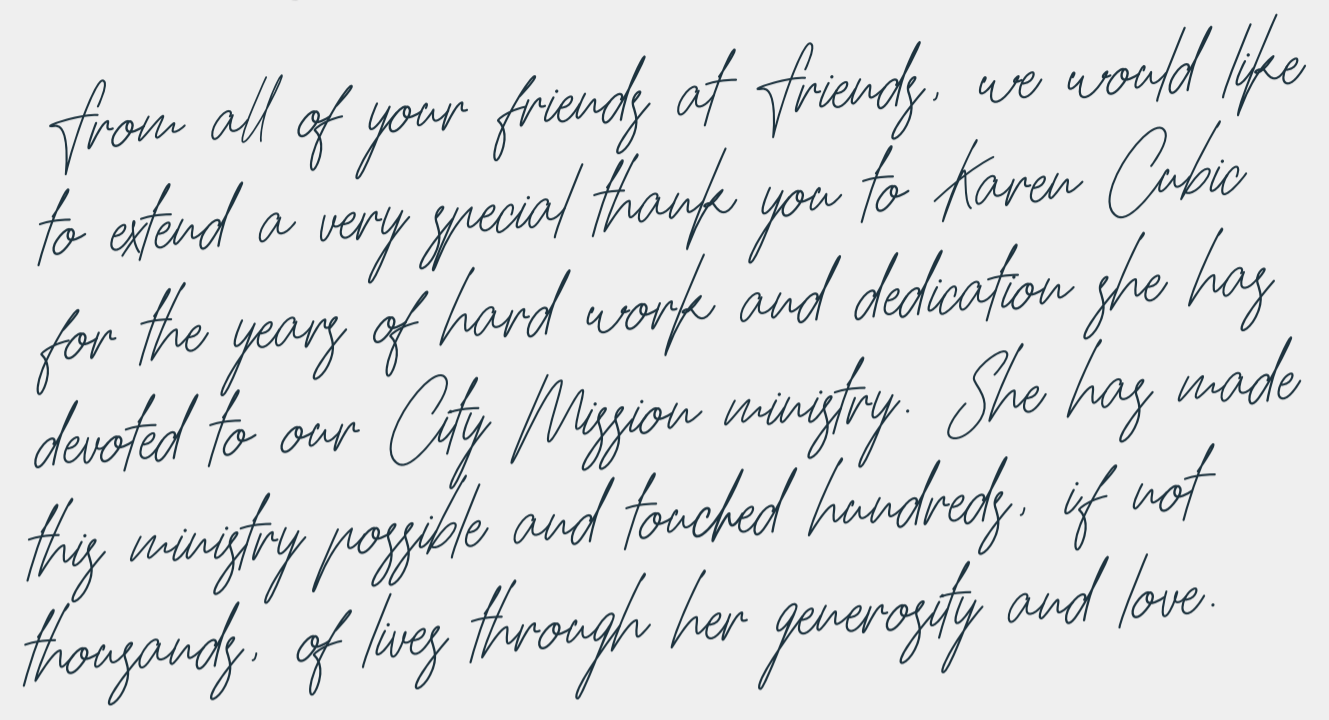 From all of your friends at Friends, we would like
to extend a very special thank you to Karen Cubic
for the years of hard work and dedication she has
devoted to our City Mission ministry. She has made
this ministry possible and touched hundreds, if not
thousands, of lives through her generosity and love.